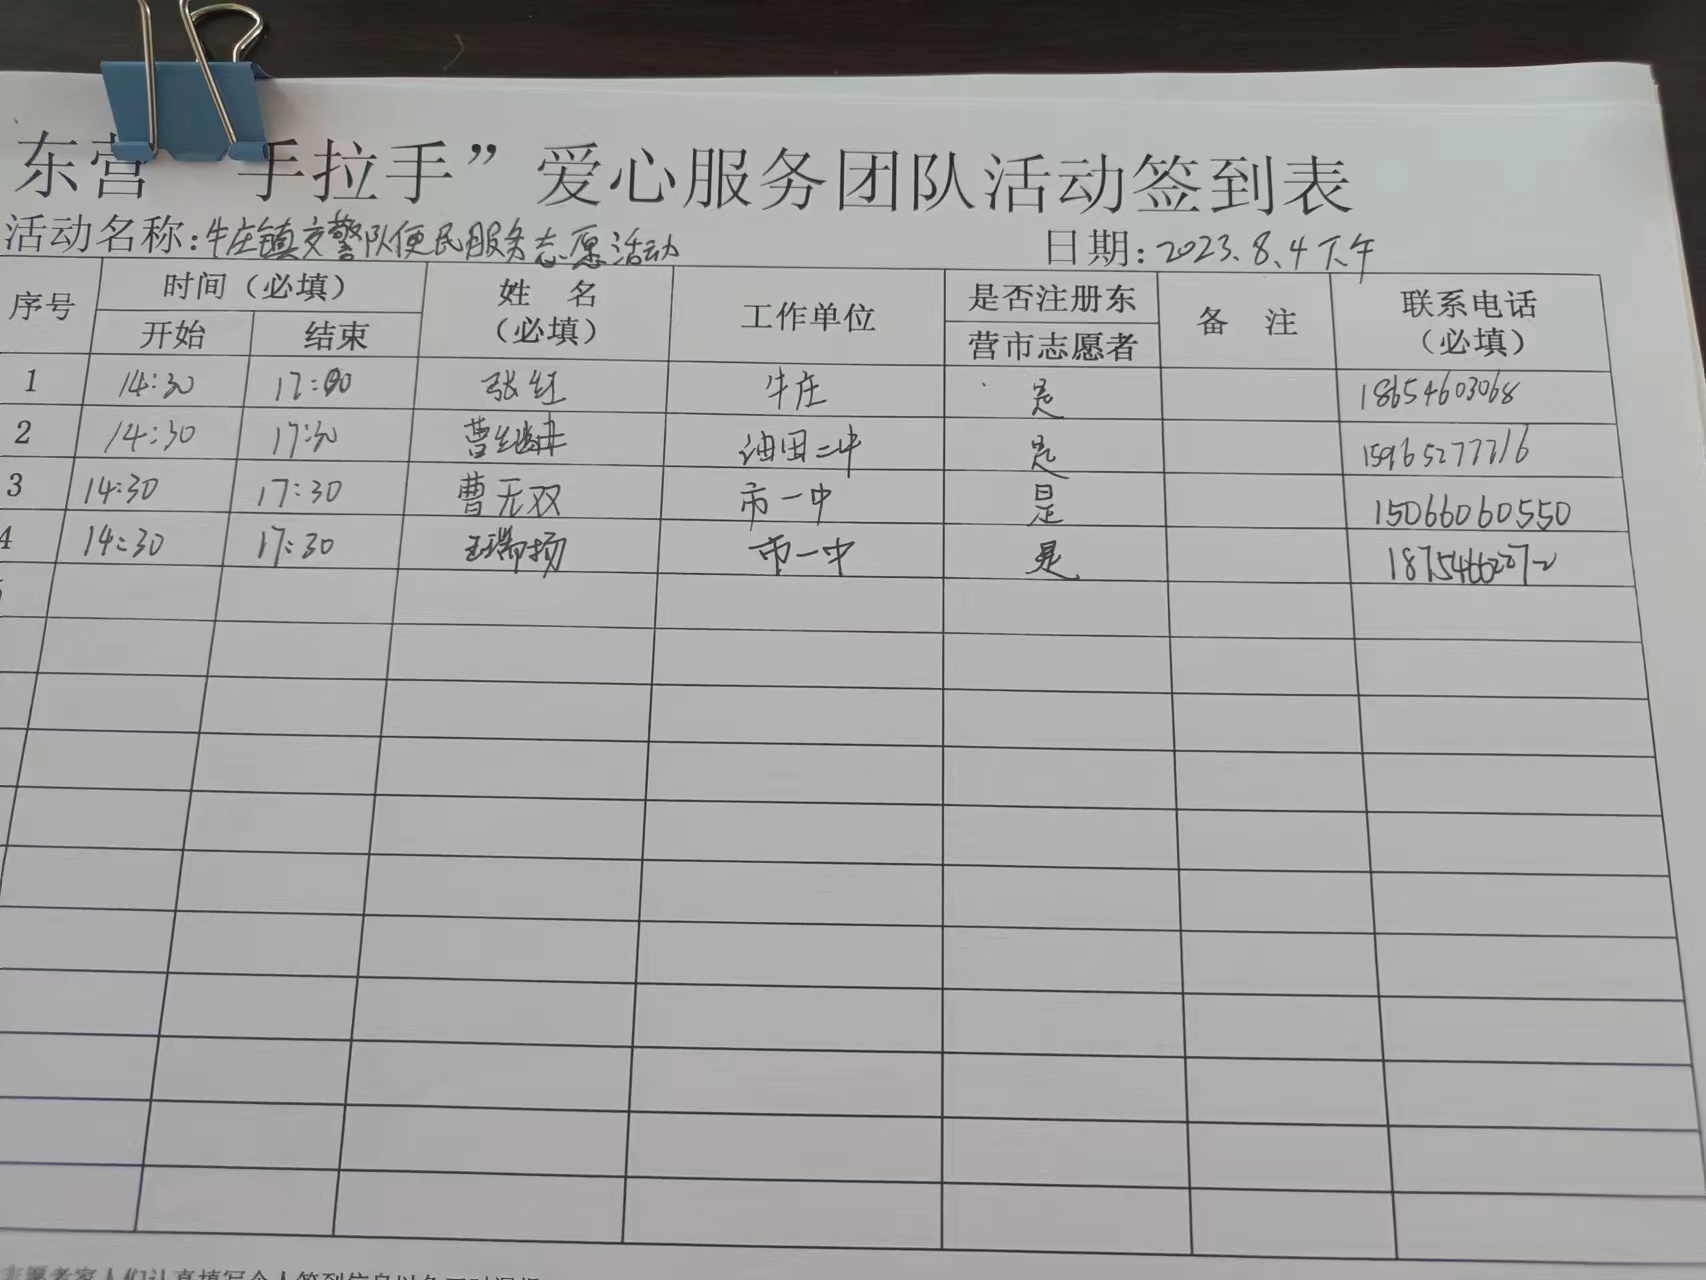 东营“手拉手”爱心服务团队活动签到表
活动名称:牛庄镇交警队便民服务志愿活动 日期:2023.8.4下午
序号 时间（必填） 姓 名（必填） 工作单位 是否注册东营市志愿者 备 注 联系电话（必填）
开始 结束
1 14:30 17:00 张红 牛庄 是 18654603068
2 14:30 17:30 曹 油田二中 是
3 14:30 17:30 曹无双 市一中 是 15066060550
4 14:30 17:30 王瑞扬 市一中 是